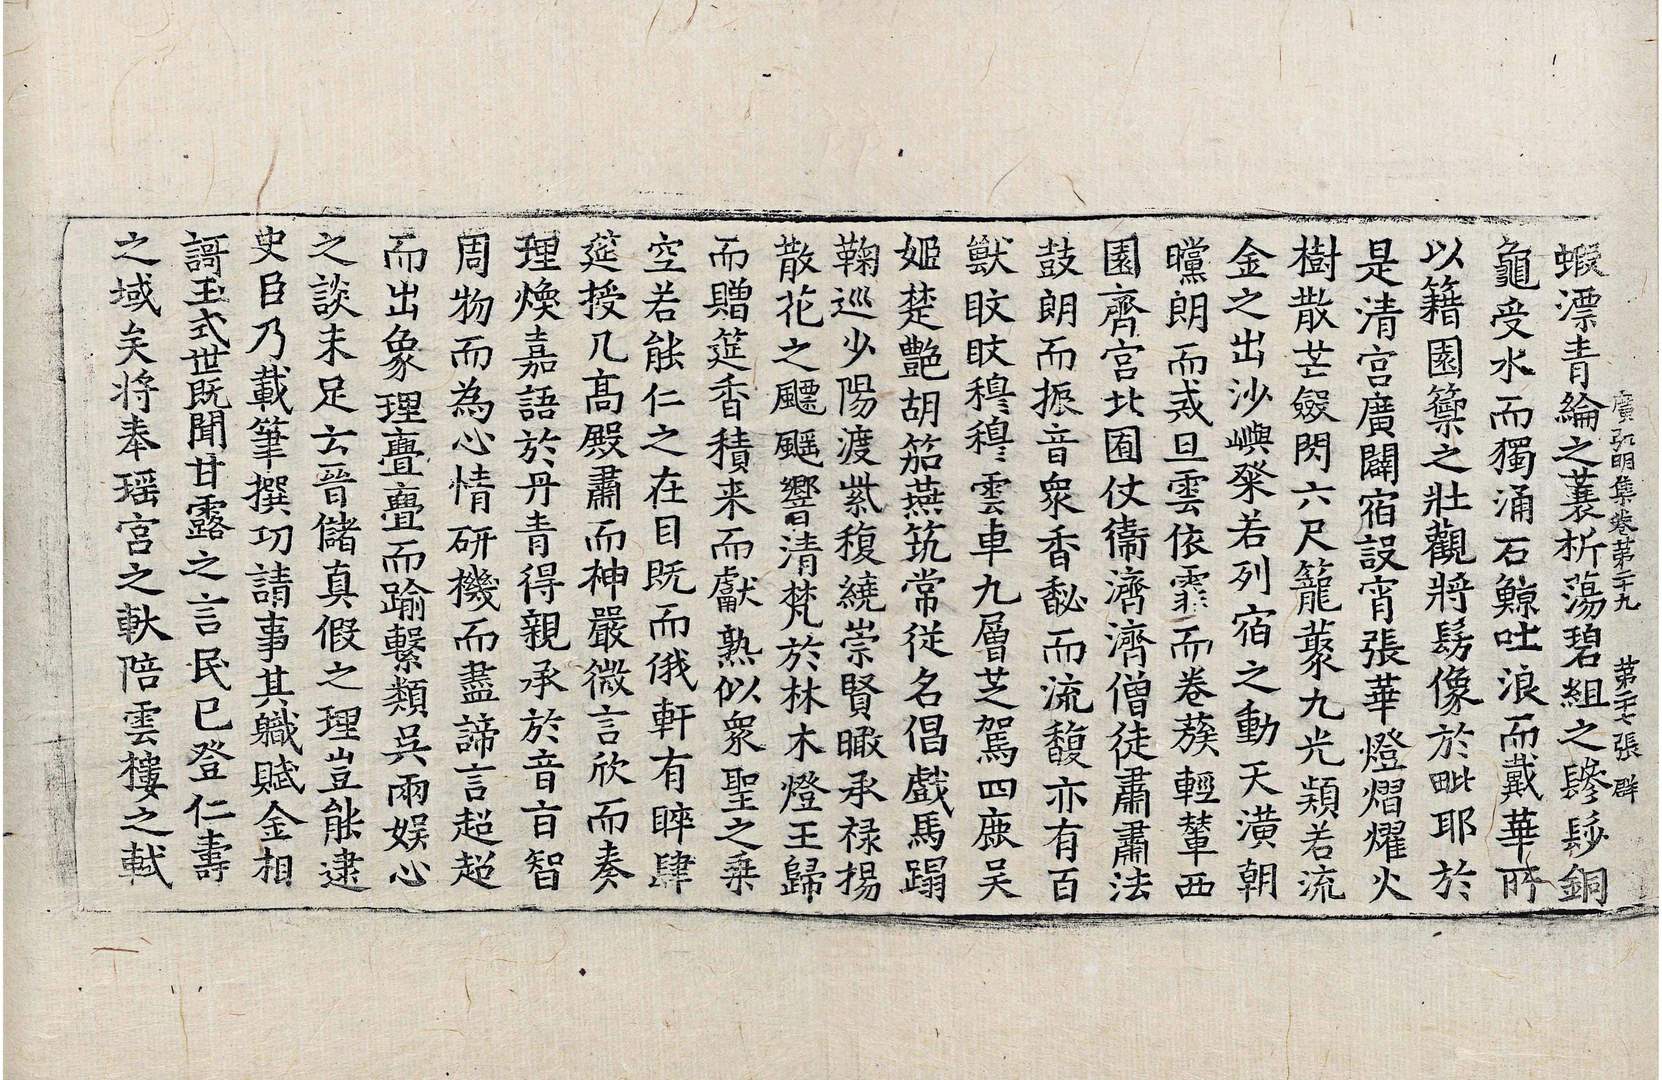 廣弘明集卷第二十九　第二十七張　群
蝦漂青綸之蓑析蕩碧組之鬖髿銅
龜受水而獨涌石鯨吐浪而戴華所
以籍園籞之壯觀將髣像於毗耶於
是清宮廣闢宿設宵張華燈熠耀火
樹散芒釹閃六尺籠藂九光熲若流
金之出沙嶼粲若列宿之動天潢朝
曭朗而戒旦雲依霏而卷蔟輕輦西
園齊宮北囿仗衞濟濟僧徒肅肅法
鼓朗而振音衆香馝而流馥亦有百
獸旼旼穆穆雲車九層芝駕四鹿吳
姬楚艷胡笳燕筑常從名倡戲馬蹋
鞠巡少陽渡紫複繞崇賢瞰承祿揚
散花之飃颻響清梵於林木燈王歸
而贈筵香積来而獻熟似衆聖之乗
空若能仁之在目既而俄軒有睟肆
筵授几髙殿肅而神嚴微言欣而奏
理煥嘉語於丹青得親承於音盲智
周物而為心情研機而盡諦言超超
而出象理亹亹而踰繫類吳兩娱心
之談未足云晉儲真假之理豈能逮
史臣乃載筆撰功請事其軄賦金相
謌玉式世既聞甘露之言民已登仁壽
之域矣将奉瑶宮之軑陪雲樓之軾